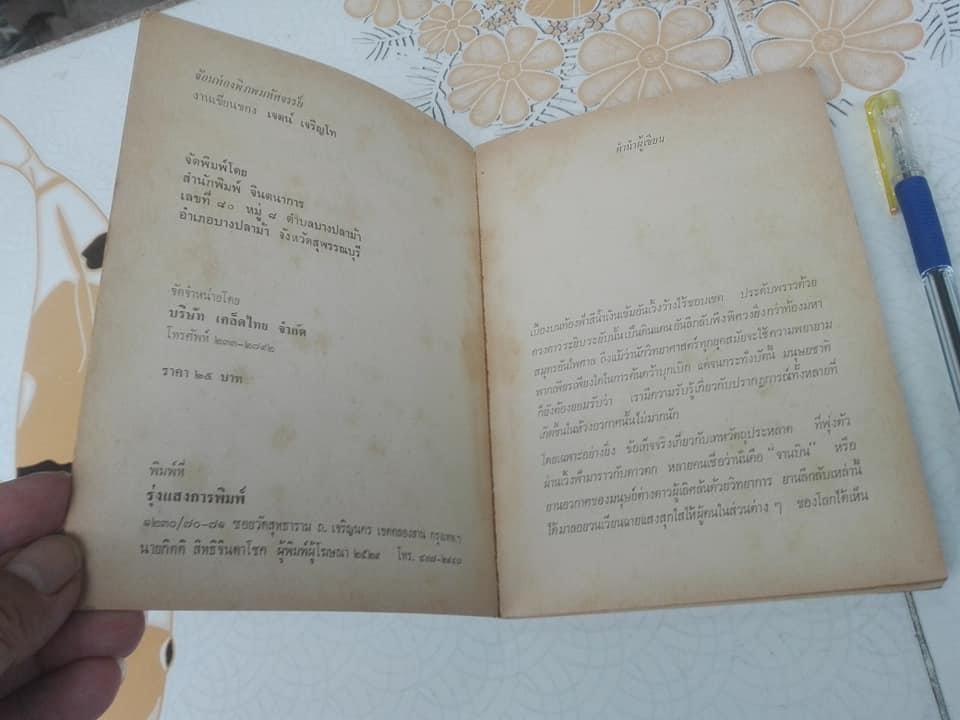 จ้อนท่องพิภพมหัศจรรย์
งานเขียนของ เจตน์ เจริญโท
จัดพิมพ์โดย
สำนักพิมพ์ จินตนาการ
เลขที่ ๔๐ หมู่ ๘ ตำบลบางปลาม้า
อำเภอบางปลาม้า จังหวัดสุพรรณบุรี
จัดจำหน่ายโดย
บริษัท เคล็ดไทย จำกัด
โทรศัพท์ ๒๓๓-๒๘๔๒
ราคา ๒๕ บาท
พิมพ์ที่
รุ่งแสงการพิมพ์
๑๒๓๐/๘๐-๘๑ ซอยวัดสุทธาราม ถ. เจริญนคร เขตคลองสาน กรุงเทพฯ
นายกิตติ สิทธิจินดาโชค ผู้พิมพ์ผู้โฆษณา ๒๕๒๙ โทร.
คำนำผู้เขียน
เบื้องบนท้องฟ้าสีน้ำเงินเข้มอันเวิ้งว้างไร้ขอบเขต ประดับพราวด้วย
ดวงดาวระยิบระยับนั้นเป็นดินแดนอันลึกลับพึงพิศวงยิ่งกว่าท้องมหา
สมุทรอันไพศาล ถึงแม้ว่านักวิทยาศาสตร์ทุกยุคสมัยจะใช้ความพยายาม
พากเพียรเพียงใดในการค้นคว้าบุกเบิก แต่จนกระทั่งบัดนี้ มนุษยชาติ
ก็ยังต้องยอมรับว่า เรามีความรับรู้เกี่ยวกับปรากฏการณ์ทั้งหลายที่
เกิดขึ้นในห้วงอวกาศนั้นไม่มากนัก
โดยเฉพาะอย่างยิ่ง ข้อเท็จจริงเกี่ยวกับเทหวัตถุประหลาด ที่พุ่งตัว
ผ่านเวิ้งฟ้ามาราวกับดาวตก หลายคนเชื่อว่านั่นคือ "จานบิน" หรือ
ยานอวกาศของมนุษย์ต่างดาวผู้เลิศล้ำด้วยวิทยาการ ยานลึกลับเหล่านี้
ได้มาลอยวนเวียนฉายแสงสุกใสให้ผู้คนในส่วนต่าง ๆ ของโลกได้เห็น